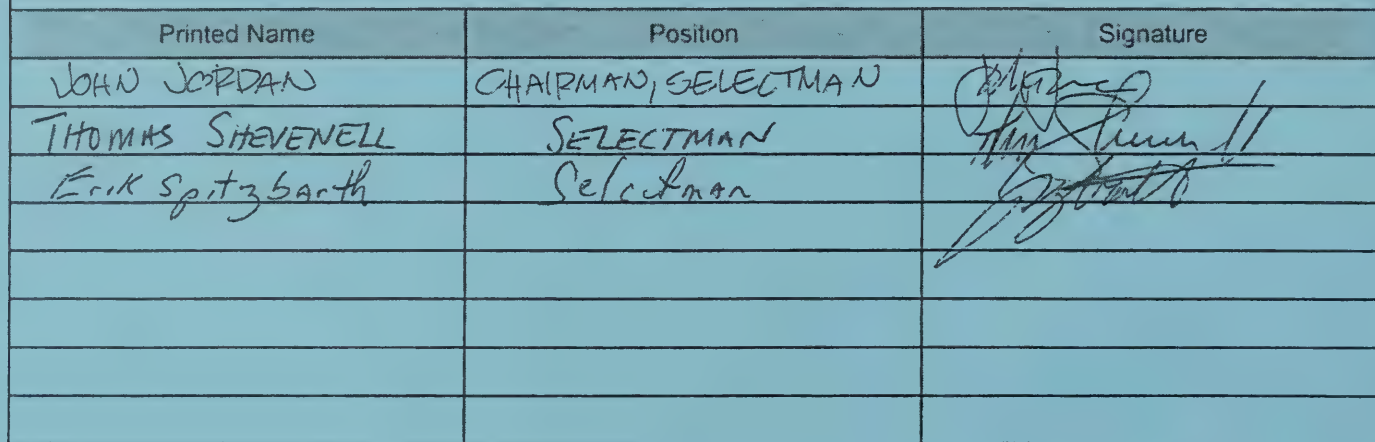 Printed Name Position Signature
JOHN JORDAN CHAIRMAN, SELECTMAN
THOMAS SHEVENELL SELECTMAN
Erik Spitzbarth Selectman